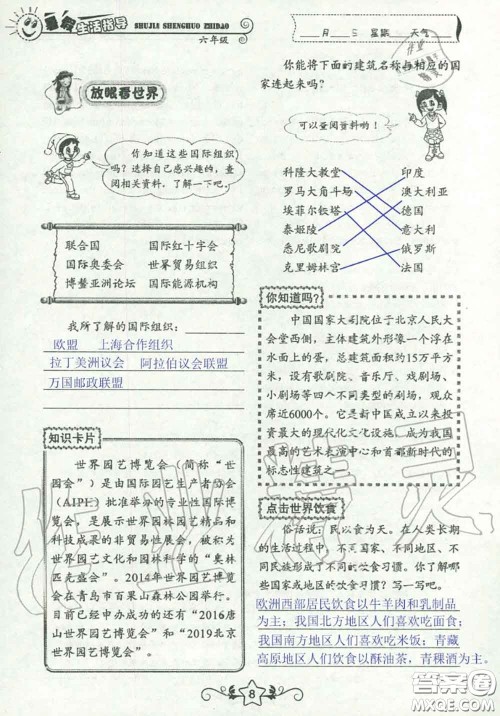 暑假生活指导
SHUJIA SHENGHUO ZHIDAO
六年级
月 日 星期 天气
放眼看世界
你知道这些国际组织
吗？选择自己感兴趣的，查
阅相关资料，了解一下吧。
联合国 国际红十字会
国际奥委会 世界贸易组织
博鳌亚洲论坛 国际能源机构
我所了解的国际组织：
欧盟 上海合作组织
拉丁美洲议会 阿拉伯议会联盟
万国邮政联盟
知识卡片
世界园艺博览会（简称“世
园会”）是由国际园艺生产者协会
（AIPH）批准举办的专业性国际博
览会，是展示世界园林园艺精品和
科技成果的非贸易性展会，被称为
世界园艺文化和园林科学的“奥林
匹克盛会”。2014年世界园艺博览会
在青岛市百果山森林公园举行。
目前已经申办成功的还有“2016唐
山世界园艺博览会”和“2019北京
世界园艺博览会”。
你能将下面的建筑名称与相应的国
家连起来吗？
可以查阅资料哟！
科隆大教堂 印度
罗马大角斗场 澳大利亚
埃菲尔铁塔 德国
泰姬陵 意大利
悉尼歌剧院 俄罗斯
克里姆林宫 法国
你知道吗?
中国国家大剧院位于北京人民大
会堂西侧，主体建筑外形像一个浮在
水面上的蛋，总建筑面积约15万平方
米，设有歌剧院、音乐厅、戏剧场、
小剧场等四个不同类型的剧场，观众
席近6000个。它是新中国成立以来投
资最大的现代化文化设施，成为我国
最高的艺术表演中心和首都新时代的
标志性建筑之一。
点击世界饮食
俗话说：民以食为天。在人类长期
的生活过程中，不同国家、不同地区、不
同民族形成了不同的饮食习惯。你了解哪
些国家或地区的饮食习惯？写一写吧。
欧洲西部居民饮食以牛羊肉和乳制品
为主；我国北方地区人们喜欢吃面食；
我国南方地区人们喜欢吃米饭；青藏
高原地区人们饮食以酥油茶，青稞酒为主。
8
作业精灵
答案圈
MXQE.COM